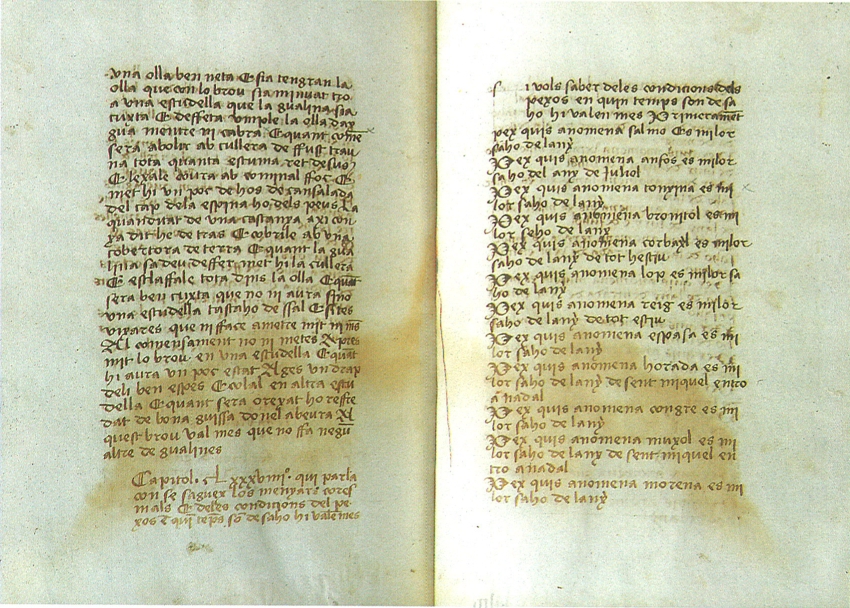 vna olla ben neta E sia tengran la
olla que con lo brou sia minuat tro
a vna escudella que la gualina sia
cuyta E desfeta vmple la olla day
gua mentre ni cabra E quant
sera abolir ab cullera de fust trau
na tota quanta escuma ret desus
E lexale coura ab cominal foc E
met hi vn poc de hos de cansalada
del cap dela espina ho dels peus la
quantitat de vna castanya axi con
ya dit he de tras E cobrile ab vna
cobertora de terra E quant la gua
lina sadeu desfer met hi la cullera
E esclaffale tota dins la olla E quāt
sera ben cuyta que no ni aura sino
vna escudella tastaho de sal E si es
que ni face ametre mit ni mes
Al comensament no ni metes
mit lo brou en vna escudella E quāt
hi aura vn poc estat Ages vn drap
deli ben espes E colal en altra escu
della E quant sera orexat ho refre
dat de bona guissa donel abeura Al
quest brou val mes que no ffa negū
altre de gualines
Capitol · Lxxxviiii° · qui parla
con se seguex los menyars cores
mals E deles condicions del pe
xos ē q̄ tēps sō de saho hi valē mes
s i vols saber deles condicions dels
pexos en quin temps son de sa
ho hi valen mes Primerament
pex quis anomena salmo Es milor
saho de lany
Pex quis anomena anfos es milor
saho del any de Juliol
Pex quis anomena tonyina es mi
lor saho de lany
Pex quis anomena bromitol es mi
lor seho de lany
Pex quis anomena corbayl es milor
saho de lany de tot hestiu
Pex quis anomena lop es milor sa
ho de lany
Pex quis anomena reig es milor
saho de lany de tot estiu
Pex quis anomena espasa es mi
lor saho de lany
Pex quis anomena horada es mi
lor saho de lany de sent miquel entro
a nadal
Pex quis anomena congre es mi
lor saho de lany
Pex quis anomena muxol es mi
lor saho de lany de sent miquel en
tro a nadal
Pex quis anomena morena es mi
lor saho de lany